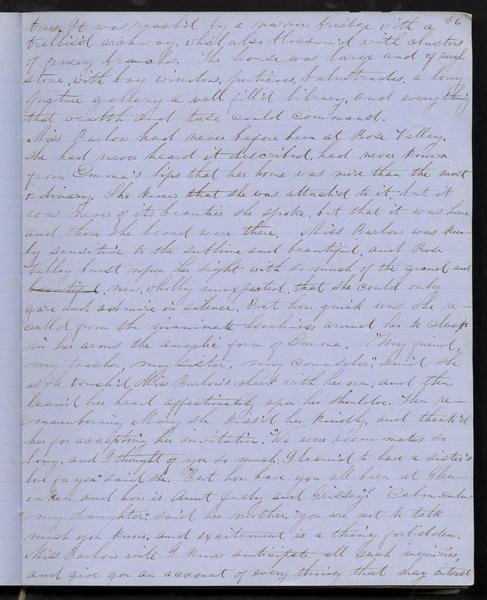 66
trees. It was reach'd by a narrow bridge with a
trellis'd archway, which also blossom'd with clusters
of rosey branches. The house was large and of rough
stone, with bay window, porticoes, balustrades, a long
picture gallery a well fill'd library, and everything
that wealth and taste could command.
Miss Barlow had never before been at Rose Valley.
She had never heard it described, had never known
from Emma's lips that her home was more than the most
ordinary. She knew that she was attach'd to it, but it
was never of its beauties she spoke, but that it was home
and those she loved were there. Miss Barlow was keen-
ly sensitive to the sublime and beautiful, and Rose
Valley burst upon her sight with so much of the grand and
beautiful, new, wholly unexpected, that she could only
gaze and admire in silence. But how quick was she re-
called from the inanimate loveliness around her to clasp
in her arms the angelic form of Emma. "My friend,
my teacher, my sister, my counselor", said she
as she touch'd Miss Barlow's cheek with her own, and then
lean'd her head affectionately upon her shoulder. Then re-
membering Mary she kiss'd her kindly, and thank'd
her for accepting her invitation. "We were room-mates so
long, and I thought of you so much, I learn'd to have a sister's
love for you" said she. "But how have you all been at Glen-
oaken, and how is Aunt Judy and Grissey?" "Calm calm
my daughter", said her mother, "you are not to talk
much you know, and excitement is a thing forbidden.
Miss Barlow will I know anticipate all such inquiries,
and give you an account of every thing that may interest